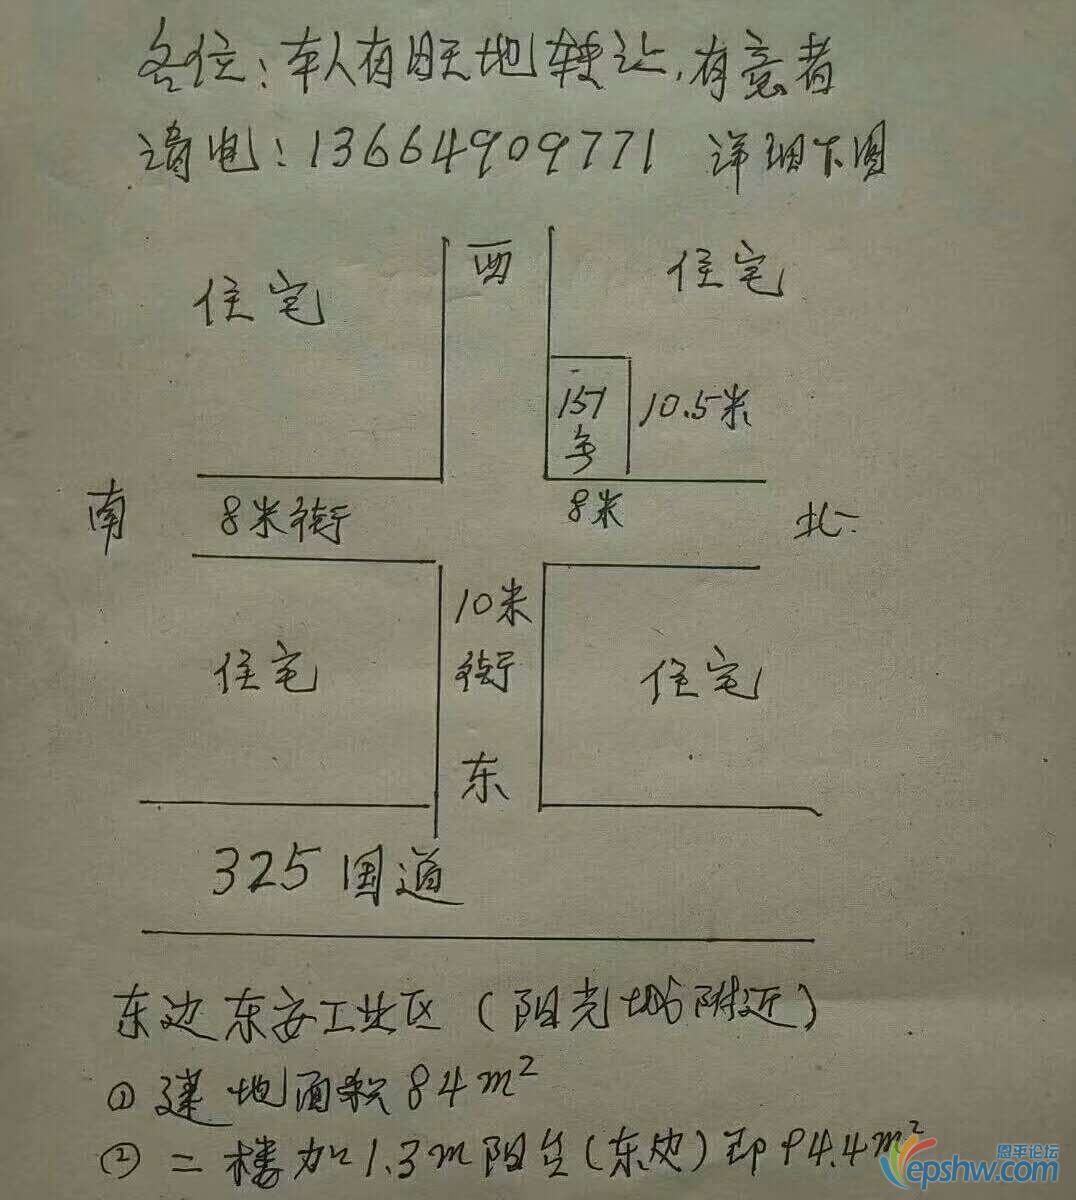 各位:本人有旺地转让,有意者
请电:13664909771 详细下图
西
住宅
住宅
151
号
10.5米
南
8米街
8米
北
10米
街
住宅
住宅
东
325国道
东边东安工业区(阳光城附近)
① 建地面积84m²
② 二楼加1.3m阳台(东边)即94.4m²
恩平论坛
epshw.com